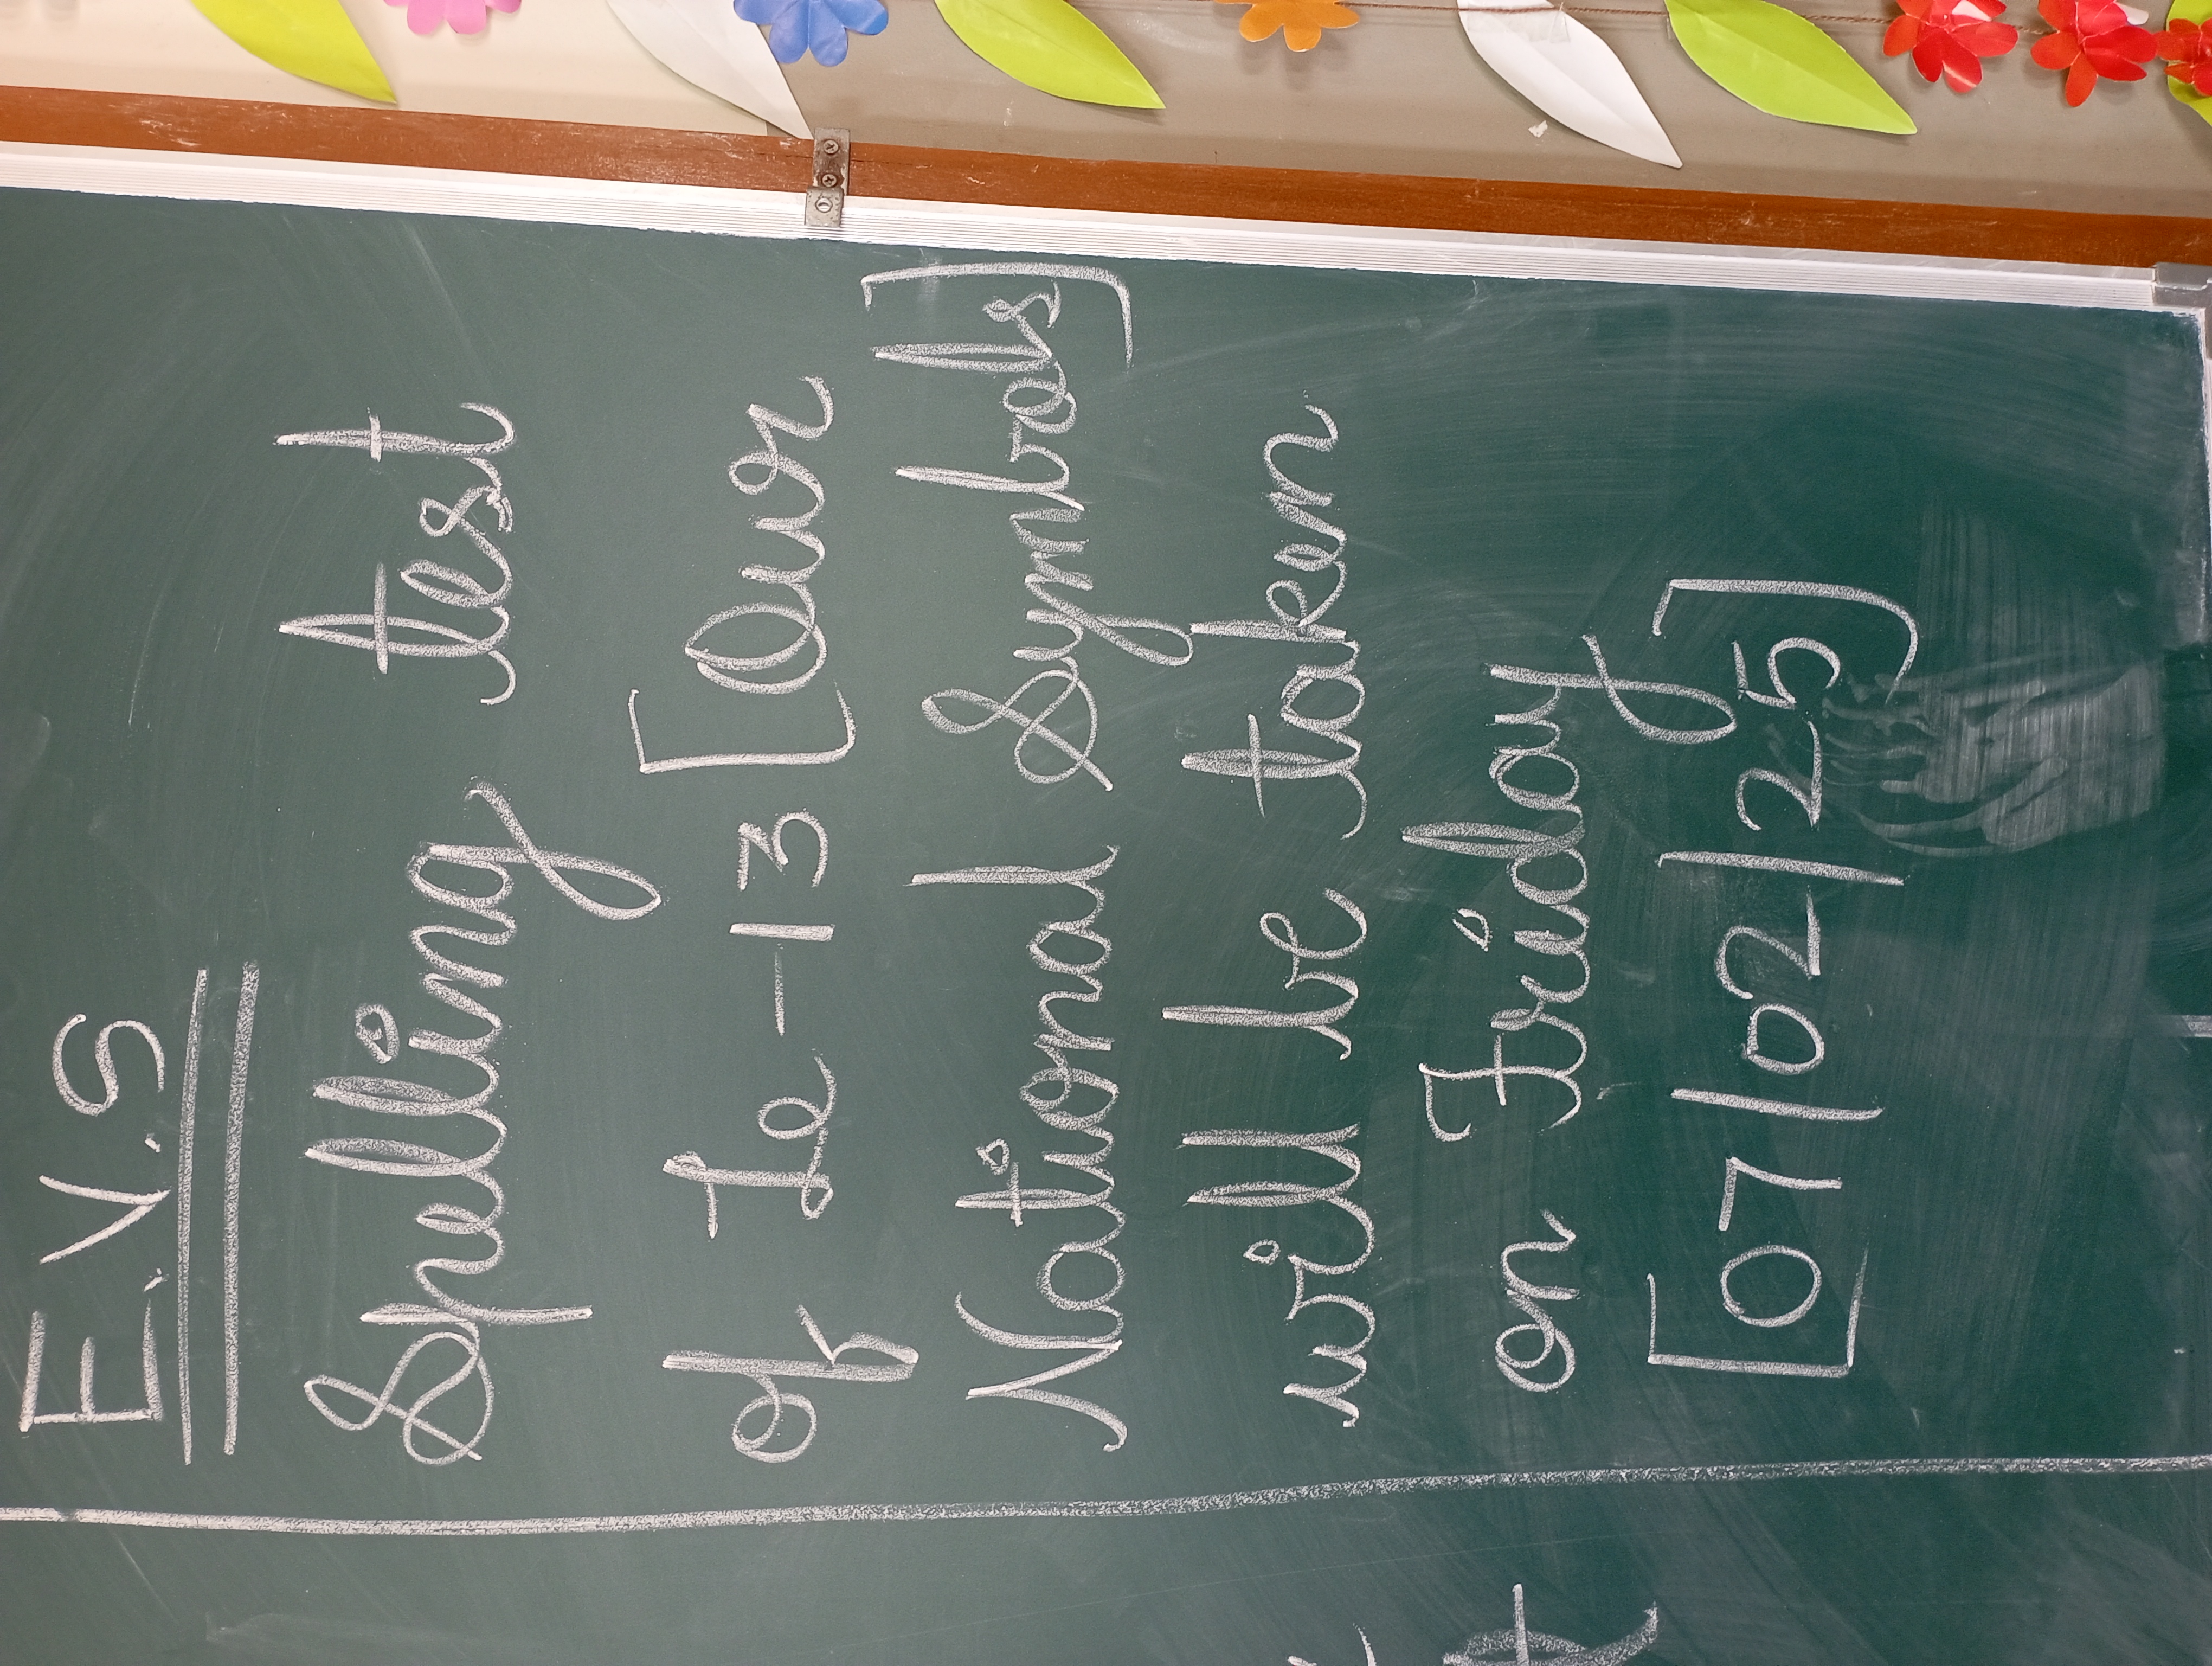 E.V.S
Spelling test
of Le-13 [Our
National Symbols]
will be taken
on Friday
[07/02/25]